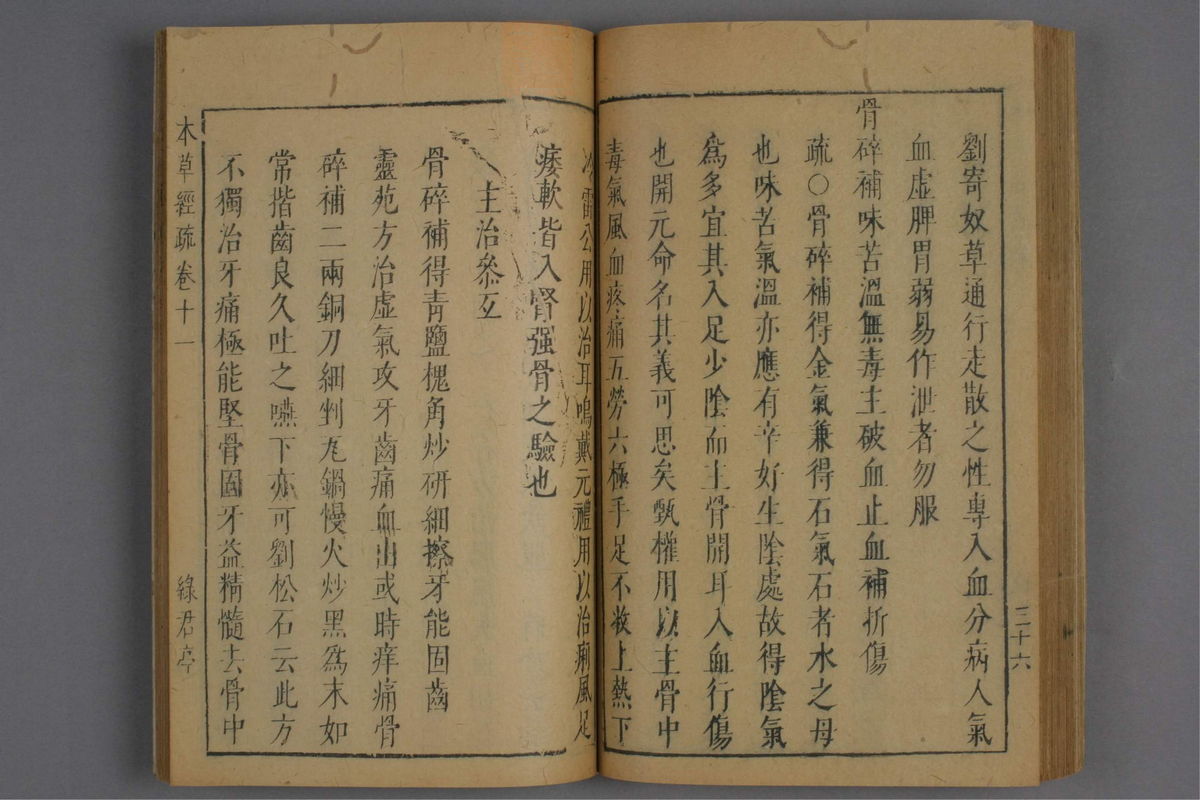 三十六
劉寄奴草通行走散之性專入血分病人氣
血虛脾胃弱易作泄者勿服
骨碎補味苦溫無毒主破血止血補折傷
疏○骨碎補得金氣兼得石氣石者水之母
也味苦氣溫亦應有辛好生陰處故得陰氣
為多宜其入足少陰而主骨開耳入血行傷
也開元命名其義可思矣甄權用以主骨中
毒氣風血疼痛五勞六極手足不收上熱下
冷雷公用以治耳鳴戴元禮用以治痢風足
痿軟皆入腎强骨之驗也
主治參互
骨碎補得青鹽槐角炒研細擦牙能固齒
靈苑方治虛氣攻牙齒痛血出或時痒痛骨
碎補二兩銅刀細剉瓦鍋慢火炒黑爲末如
常揩齒良久吐之嚥下亦可劉松石云此方
不獨治牙痛極能堅骨固牙益精髓去骨中
本草經疏卷十一
綠君亭